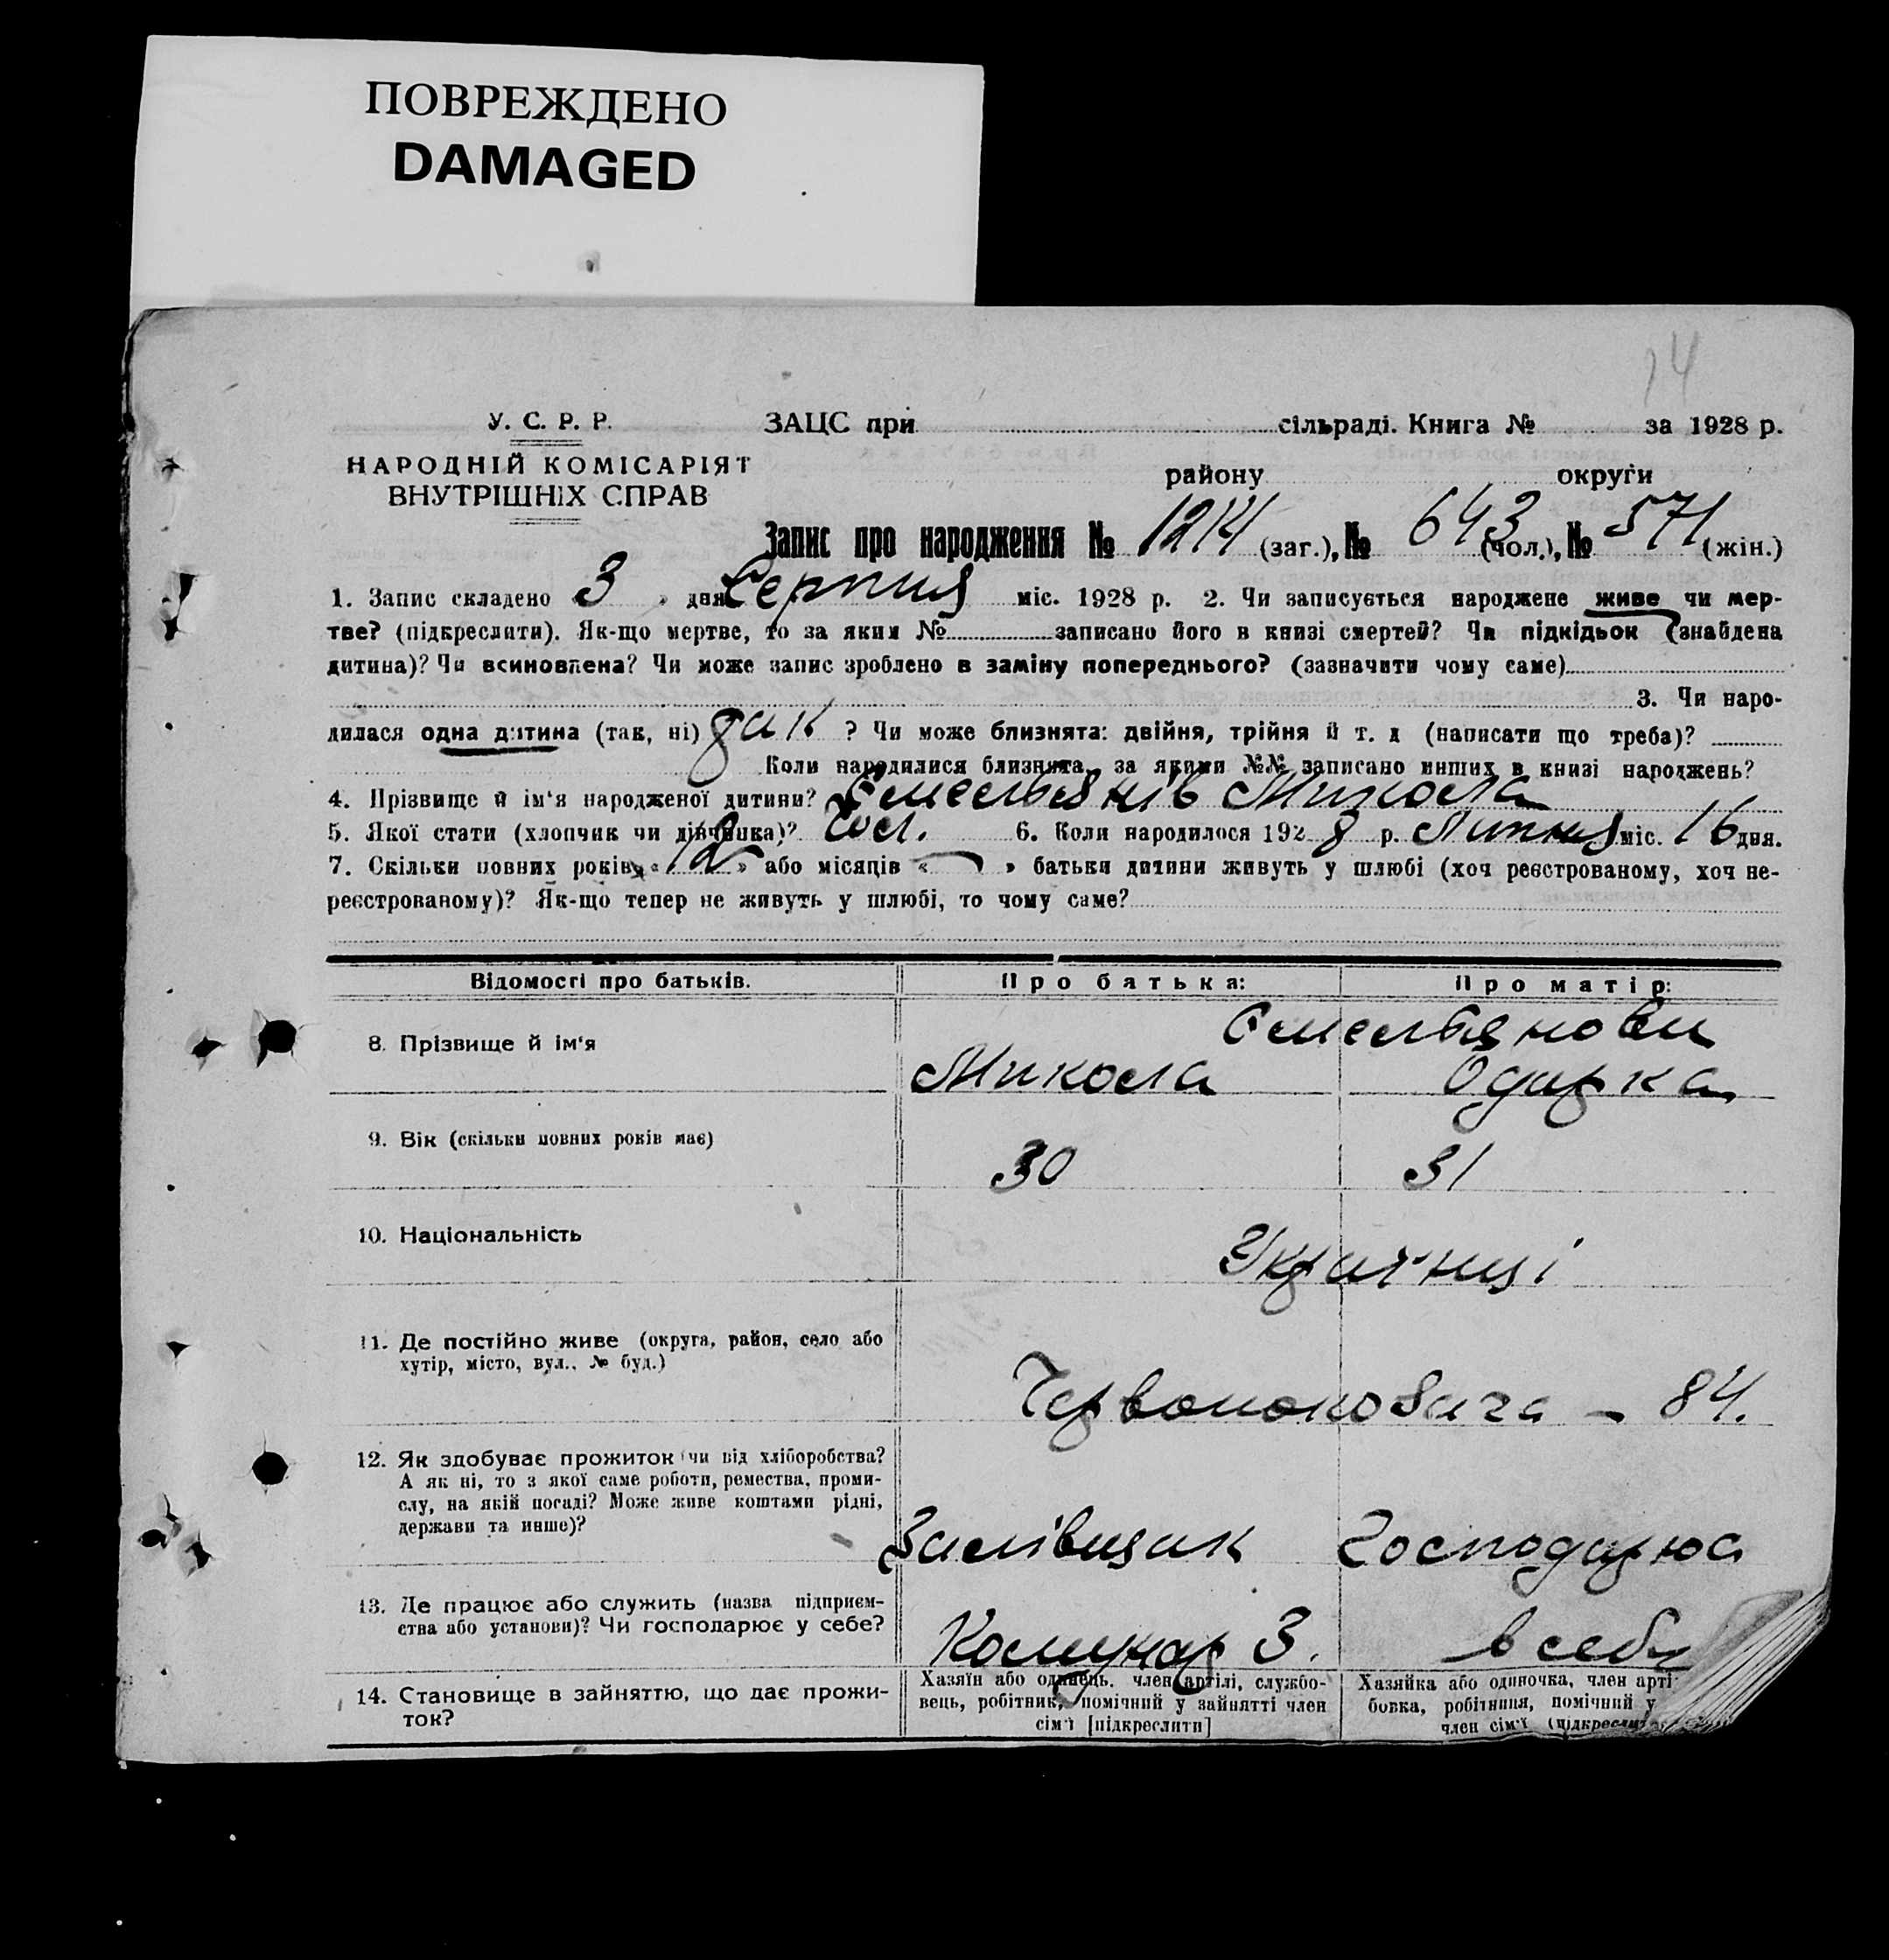 ПОВРЕЖДЕНО
DAMAGED
14
У. С. Р. Р.
НАРОДНІЙ КОМІСАРІЯТ
ВНУТРІШНІХ СПРАВ
ЗАЦС при сільраді. Книга № за 1928 р.
району округи
Запис про народження № 1214 (заг.), № 643 (чол.), № 571 (жін.)
1. Запис складено « 3 » дня Серпня міс. 1928 р. 2. Чи записується народжене живе чи мер-
тве? (підкреслити). Як-що мертве, то за яким № записано його в книзі смертей? Чи підкідьок (знайдена
дитина)? Чи всиновлена? Чи може запис зроблено в заміну попереднього? (зазначити чому саме)
3. Чи наро-
дилася одна дитина (так, ні) так ? Чи може близнята: двійня, трійня й т. д (написати що треба)?
Коли народилися близнята, за якими №№ записано инших в книзі народжень?
4. Прізвище й ім'я народженої дитини? Омельянів Микола
5. Якої стати (хлопчик чи дівчинка)? чол. 6. Коли народилося 1928 р. Липня міс. 16 дня.
7. Скільки повних років « 12 » або місяців « — » батьки дитини живуть у шлюбі (хоч реєстрованому, хоч не-
реєстрованому)? Як-що тепер не живуть у шлюбі, то чому саме?
Відомості про батьків. Про батька: Про матір:
Омельянови
8. Прізвище й ім'я Микола Одарка
9. Вік (скільки повних років має) 30 31
10. Національність Українці
11. Де постійно живе (округа, район, село або
хутір, місто, вул., № буд.)
Червонокозача - 84.
12. Як здобуває прожиток (чи від хліборобства?
А як ні, то з якої саме роботи, ремества, проми-
слу, на якій посаді? Може живе коштами рідні,
держави та инше)?
Залівщик Господарює
13. Де працює або служить (назва підприєм-
ства або установи)? Чи господарює у себе?
Комунар З. в себе
14. Становище в зайняттю, що дає прожи-
ток?
Хазяїн або одинець, член артілі, службо-
вець, робітник, помічний у зайнятті член
сім'ї [підкреслити]
Хазяйка або одиночка, член арті
бовка, робітниця, помічний у
член сім'ї (підкресли